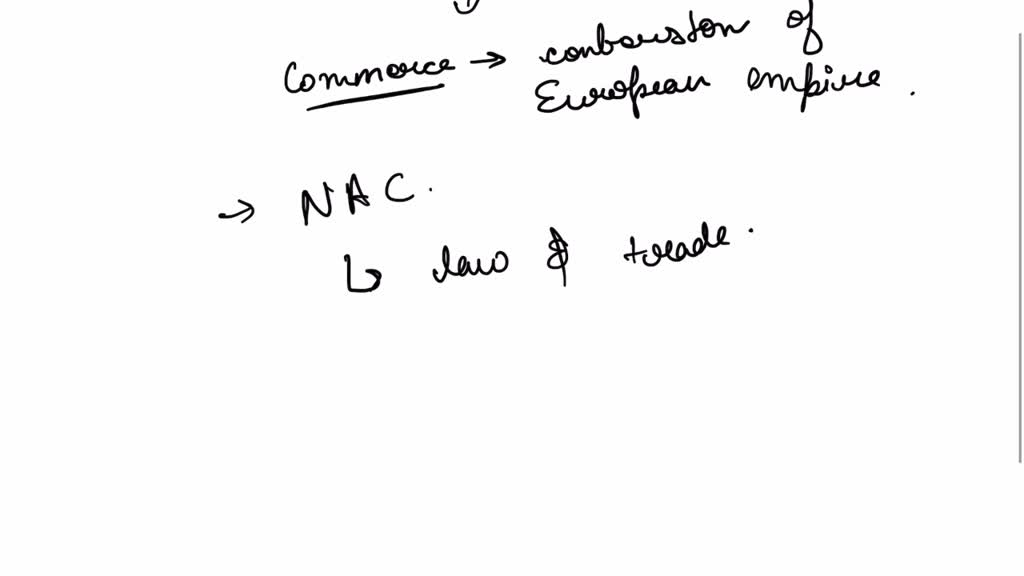 Commerce → conbouston of
European empire.
→ NAC.
↳ law & trade.